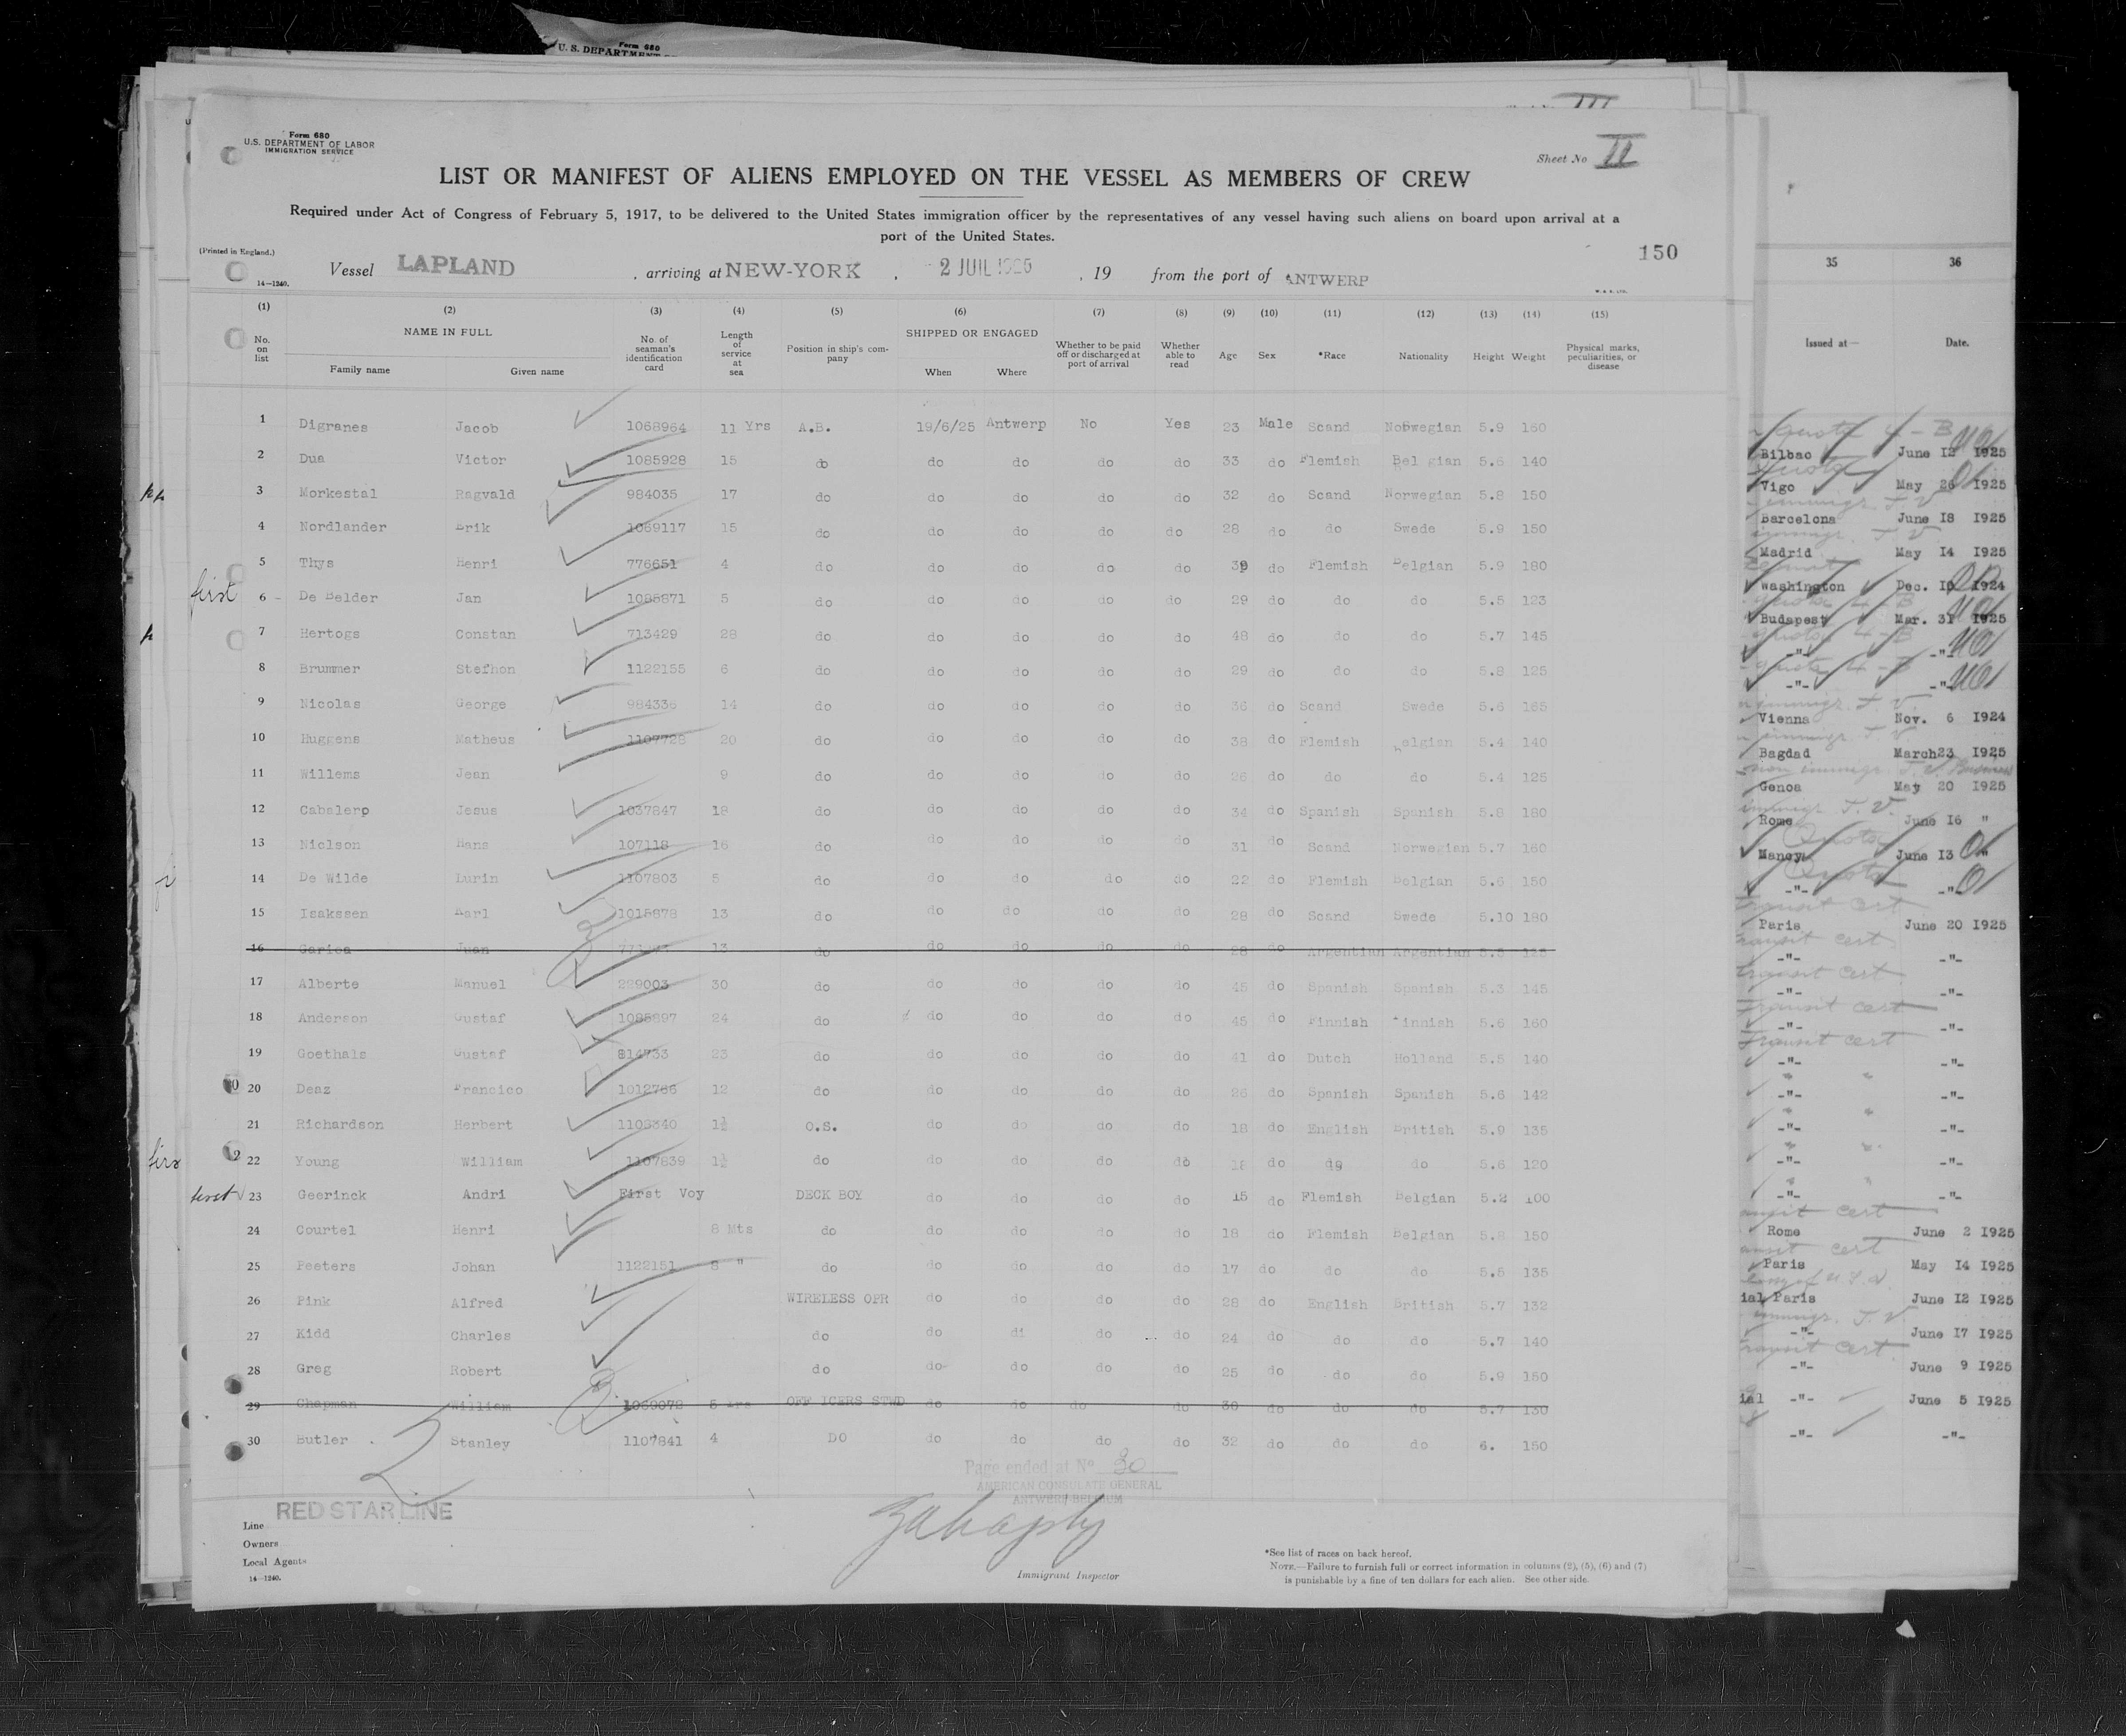 Form 680
U. S. DEPARTMENT
III
Form 680
U.S. DEPARTMENT OF LABOR
IMMIGRATION SERVICE
Sheet No II
LIST OR MANIFEST OF ALIENS EMPLOYED ON THE VESSEL AS MEMBERS OF CREW
Required under Act of Congress of February 5, 1917, to be delivered to the United States immigration officer by the representatives of any vessel having such aliens on board upon arrival at a
port of the United States.
(Printed in England.)
150
Vessel LAPLAND , arriving at NEW-YORK , 2 JUIL 1925 , 19 from the port of ANTWERP
14—1240.
(1) (2) (3) (4) (5) (6) (7) (8) (9) (10) (11) (12) (13) (14) (15)
No. on list NAME IN FULL Family name Given name No. of seaman's identification card Length of service at sea Position in ship's company SHIPPED OR ENGAGED When Where Whether to be paid off or discharged at port of arrival Whether able to read Age Sex *Race Nationality Height Weight Physical marks, peculiarities, or disease
1 Digranes Jacob 1068964 11 Yrs A.B. 19/6/25 Antwerp No Yes 23 Male Scand Norwegian 5.9 160
2 Dua Victor 1085928 15 do do do do do 33 do Flemish Belgian 5.6 140
3 Morkestal Ragvald 984035 17 do do do do do 32 do Scand Norwegian 5.8 150
4 Nordlander Erik 1069117 15 do do do do do 28 do do Swede 5.9 150
5 Thys Henri 776651 4 do do do do do 39 do Flemish Belgian 5.9 180
first 6 - De Belder Jan 1085871 5 do do do do do 29 do do do 5.5 123
7 Hertogs Constan 713429 28 do do do do do 48 do do do 5.7 145
8 Brummer Stefhon 1122155 6 do do do do do 29 do do do 5.8 125
9 Nicolas George 984336 14 do do do do do 36 do Scand Swede 5.6 165
10 Huggens Matheus 1107728 20 do do do do do 38 do Flemish Belgian 5.4 140
11 Willems Jean 9 do do do do do 26 do do do 5.4 125
12 Cabalero Jesus 1037847 18 do do do do do 34 do Spanish Spanish 5.8 180
13 Niclson Hans 107118 16 do do do do do 31 do Scand Norwegian 5.7 160
14 De Wilde Lurin 1107803 5 do do do do do 22 do Flemish Belgian 5.6 150
15 Isakssen Karl 1015878 13 do do do do do 28 do Scand Swede 5.10 180
16 Garica Juan 13 do do do do do 28 do Argentian Argentian 5.5 125
17 Alberte Manuel 229003 30 do do do do do 45 do Spanish Spanish 5.3 145
18 Anderson Gustaf 1085897 24 do do do do do 45 do Finnish Finnish 5.6 160
19 Goethals Gustaf 814733 23 do do do do do 41 do Dutch Holland 5.5 140
20 Deaz Francico 1012766 12 do do do do do 26 do Spanish Spanish 5.6 142
21 Richardson Herbert 1105340 1½ O.S. do do do do 18 do English British 5.9 135
22 Young William 1107839 1½ do do do do do 18 do do do 5.6 120
first 23 Geerinck Andri First Voy DECK BOY do do do do 15 do Flemish Belgian 5.2 100
24 Courtel Henri 8 Mts do do do do do 18 do Flemish Belgian 5.8 150
25 Peeters Johan 1122151 8 " do do do do do 17 do do do 5.5 135
26 Pink Alfred WIRELESS OPR do do do do 28 do English British 5.7 132
27 Kidd Charles do do di do do 24 do do do 5.7 140
28 Greg Robert do do do do do 25 do do do 5.9 150
29 Chapman William 1069078 6 Yrs OFF ICERS STWD do do do do 30 do do do 5.7 130
30 Butler Stanley 1107841 4 DO do do do do 32 do do do 6. 150
Page ended at Nº 30
AMERICAN CONSULATE GENERAL
ANTWERP, BELGIUM
2
RED STAR LINE
Line
Owners
Local Agents
14—1240.
Immigrant Inspector
*See list of races on back hereof.
NOTE.—Failure to furnish full or correct information in columns (2), (5), (6) and (7)
is punishable by a fine of ten dollars for each alien. See other side.
35 36
Issued at— Date.
Quota 4-B
Bilbao June 12 1925
Quota
Vigo May 26 1925
immigr. T. V.
Barcelona June 18 1925
immigr. T. V.
Madrid May 14 1925
Washington Dec. 10 1924
Quota 4-B
Budapest Mar. 31 1925
Quota 4-B
-"- -"-
Quota 4-B
-"- -"-
immigr. T. V.
Vienna Nov. 6 1924
immigr. T. V.
Bagdad March23 1925
non immigr. T. V. Business
Genoa May 20 1925
immigr. T. V.
Rome June 16 "
Quota
Nancy June 13 "
Quota
-"- -"-
Transit cert
Paris June 20 1925
Transit cert
-"- -"-
Transit cert
-"- -"-
Transit cert
-"- -"-
Transit cert
-"- -"-
" "
-"- -"-
" "
-"- -"-
" "
-"- -"-
" "
-"- -"-
ansit cert
Rome June 2 1925
ansit cert
Paris May 14 1925
ial Paris June 12 1925
immigr. T. V
-"- June 17 1925
Transit cert
-"- June 9 1925
ial -"- June 5 1925
-"- -"-